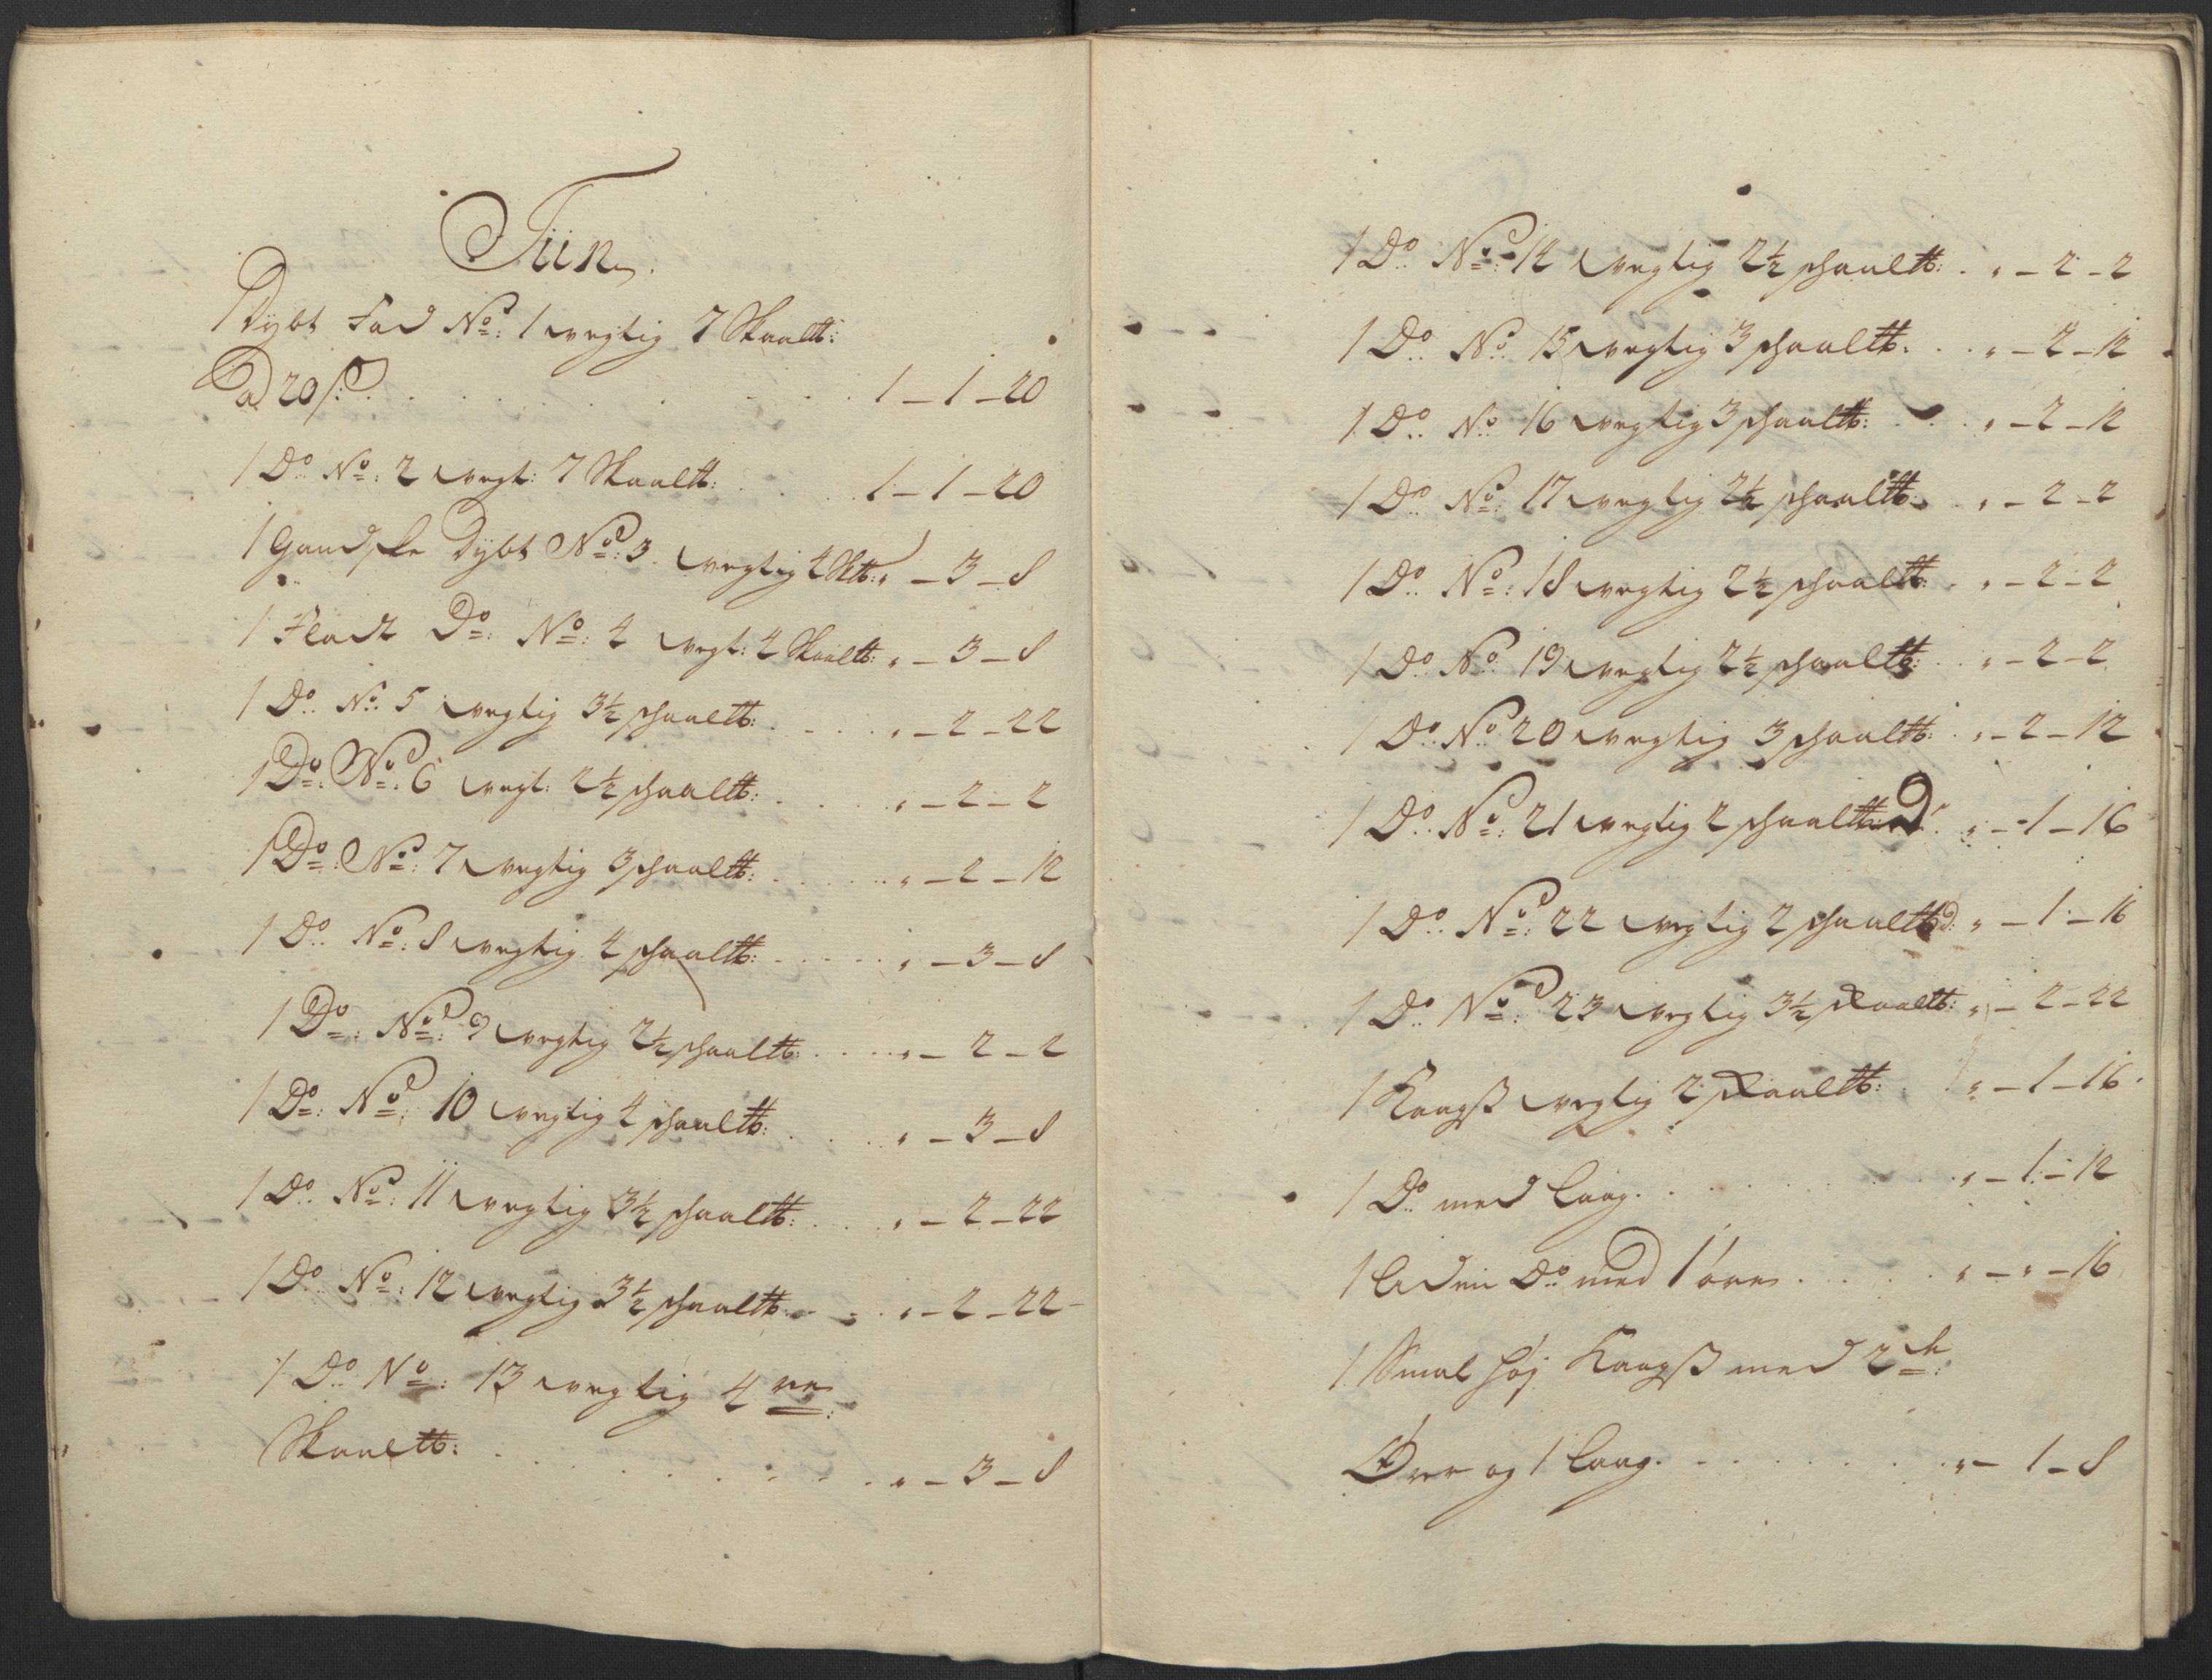 Tiin
1 Dybt Fad No: 1 vegtig 7 Skaal℔:
a 20 s: . . . . 1 – 1 – 20
1 Do No: 2 vegt: 7 Skaal℔: . . 1 – 1 – 20
1 Gandske Dybt No: 3 vegtig 4 Sk℔: " – 3 – 8
1 Fladt Do: No: 4 vegt: 4 Skaal℔: " – 3 – 8
1 Do No 5 vegtig 3½ schaal℔: . . . " – 2 – 22
1 Do: No: 6 vegt: 2½ schaal℔: . . . " – 2 – 2
1 Do: No: 7 vegtig 3 schaal℔: . . . " – 2 – 12
1 Do No: 8 vegtig 4 schaal℔: . . . " – 3 – 8
1 Do: No: 9 vegtig 2½ schaal℔: . . . " – 2 – 2
1 Do: No: 10 vegtig 4 schaal℔: . . . " – 3 – 8
1 Do No: 11 vegtig 3½ schaal℔: . . . " – 2 – 22
1 Do No: 12 vegtig 3½ schaal℔: . . . " – 2 – 22
1 Do No: 13 vegtig 4re:
Skaal℔: . . . . " – 3 – 8
1 Do No: 14 vegtig 2½ schaal℔: . " – 2 – 2
1 Do No 15 vegtig 3 schaal℔: . . " – 2 – 12
1 Do No 16 vegtig 3 schaal℔: . . " – 2 – 12
1 Do No: 17 vegtig 2½ schaal℔: . " – 2 – 2
1 Do No: 18 vegtig 2½ schaal℔: . " – 2 – 2
1 Do No 19 vegtig 2½ schaal℔: . . " – 2 – 2
1 Do No 20 vegtig 3 schaal℔: . " – 2 – 12
1 Do No: 21 vegtig 2 schaal℔: " – 1 – 16
1 Do No: 22 vegtig 2 schaal℔: " – 1 – 16
1 Do No: 23 vegtig 3½ skaal℔: " – 2 – 22
1 Kangß vegtig 2 skaal℔: . " – 1 – 16
1 Do med laag. . . . " – 1 – 12
1 liden Do med 1 øre . . . " – " – 16
1 Smal høj Kangß med 2de:
Ører og 1 laag. . . . " – 1 – 8